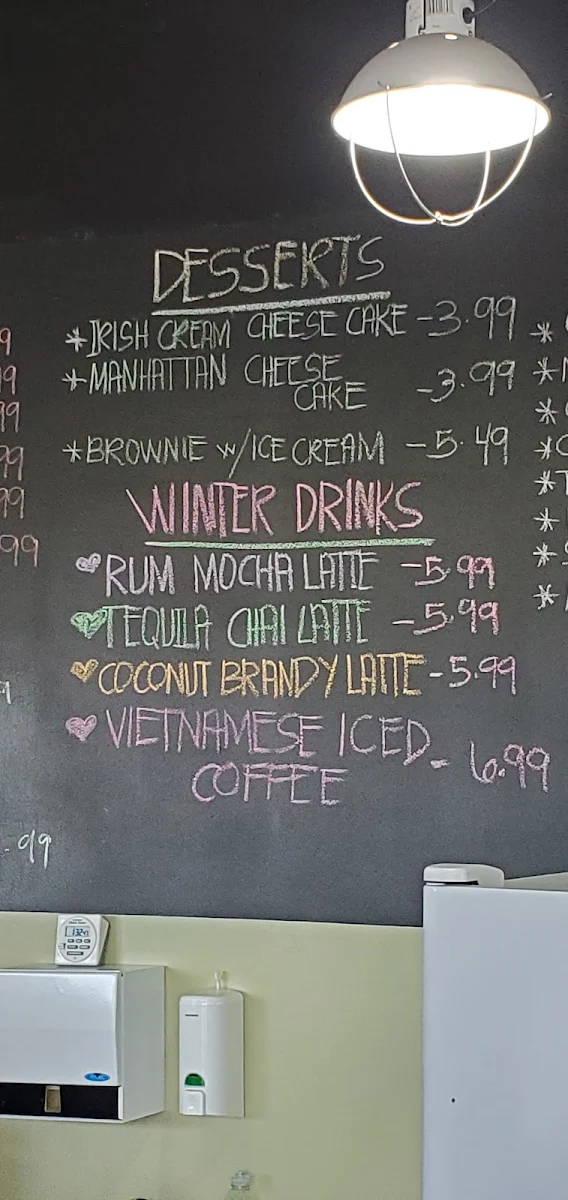 DESSERTS
*IRISH CREAM CHEESE CAKE -3.99
*MANHATTAN CHEESE
CAKE -3.99
*BROWNIE w/ICE CREAM -5.49
WINTER DRINKS
♥RUM MOCHA LATTE -5.99
♥TEQUILA CHAI LATTE -5.99
♥COCONUT BRANDY LATTE -5.99
♥VIETNAMESE ICED
COFFEE - 6.99
9
99
99
99
99
99
9
.99